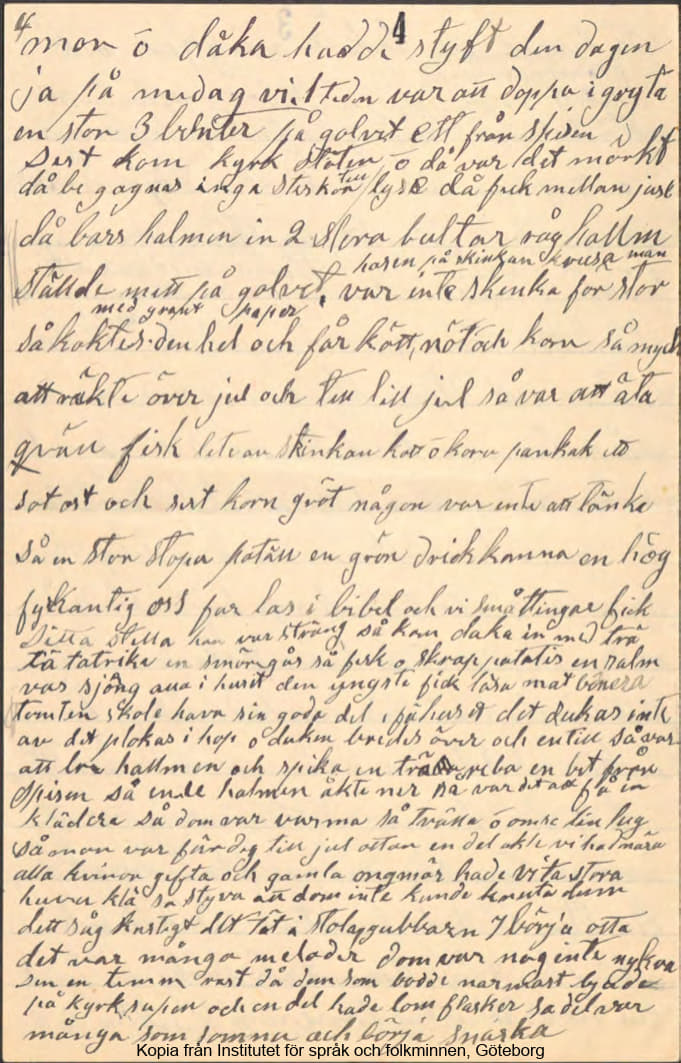 4 4
mor ō dåka hadde styft den dagen
ja på medag vilteden var att doppa i gryta
en stor 3 benter på golvet ett från spisen i
sert kom kyrk stöten ō då var det mörkt
då be gagnas inga steskor till lyse då fick mellan just
då bars halmen in 2 stora bultar råg hallm
hosen på skinkan krusa man
ställde mett på golvet, var inte skinka for stor
med grant paper
så koktes den hel och får kött, nöt och korv så myck
att räkte över jul och till lill jul så var att äta
gröu fisk lite av skinkan kött ō korv pankak ett
sot ost och sert korn gröt någon var inte att tänke
så en stor stopa potäll en grön drickkanna en hög
fyrkantig oss far las i bibel och vi småttingar fick
sitta stella han var sträng så kom daka in med trä
tatrika en smörgås så fisk o skrap patatis en salm
vas sjöng alla i huset den yngste fick läsa mat bönera
tomten skole hava sin goda del i såhuset det dukas inte
av det plokas i hop o duken bredes över och en till så var
att bra hallmen och spika en trä reba en bit från
spisen så ende halmen åkte ner så var det att få in
klädera så dom var varma så tvätta ō omse till lug
så mor var färdig till jul ottan en del åkte vi had nära
alla kvinor gefta och gamla ongmör hade vita stora
huvu klä så styva att dom inte kunde knuta dem
dett såg kostigt dit tat i stolagubbarn 7 börja otta
det var många melodier dom var nog inte nyktra
sen en timm rast då dem som bodde narmast bjude
på kyrk supen och en del hade lom flasker sa del var
många som somna och börja snarka
Kopia från Institutet för språk och folkminnen, Göteborg